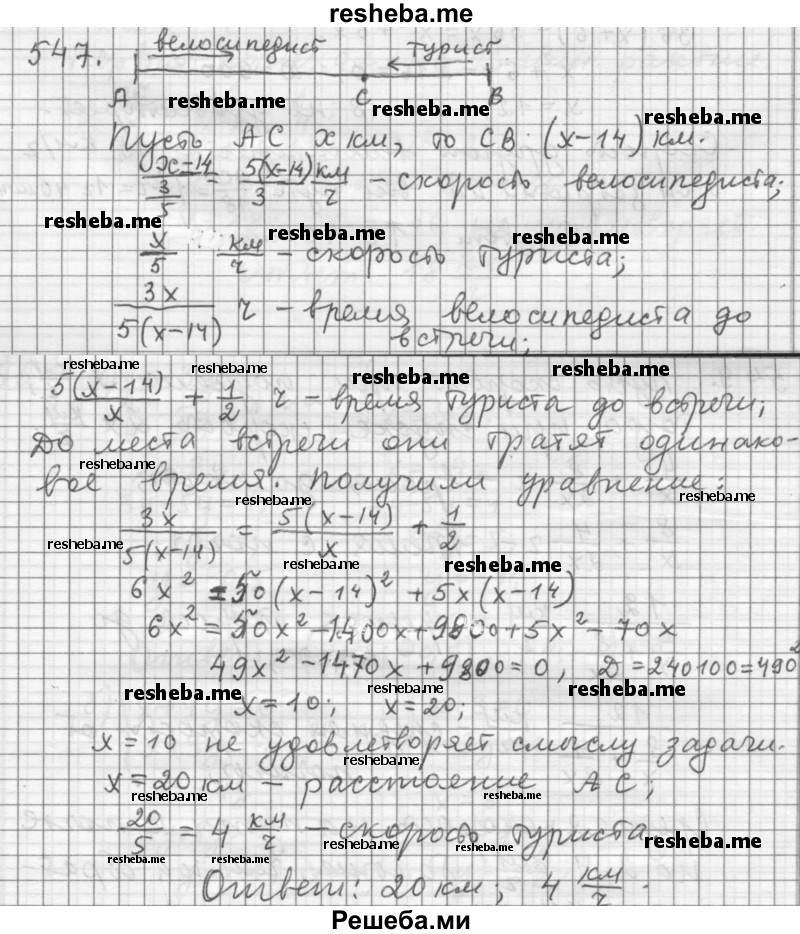 resheba.me
547. велосипедист турист
A C B
resheba.me resheba.me resheba.me
Пусть AC x км, то CB (x-14) км.
(x-14)/(3/5) = 5(x-14)/3 км/ч - скорость велосипедиста;
resheba.me resheba.me resheba.me
x/5 км/ч - скорость туриста;
3x/(5(x-14)) ч - время велосипедиста до
встречи;
resheba.me resheba.me resheba.me resheba.me
5(x-14)/x + 1/2 ч - время туриста до встречи;
До места встречи они тратят одинако-
resheba.me
вое время. Получили уравнение:
resheba.me resheba.me
3x/(5(x-14)) = 5(x-14)/x + 1/2
resheba.me resheba.me resheba.me
6x² = 50(x-14)² + 5x(x-14)
6x² = 50x² - 1400x + 9800 + 5x² - 70x
49x² - 1470x + 9800 = 0, D = 240100 = 490²
resheba.me resheba.me resheba.me
x = 10; x = 20;
x = 10 не удовлетворяет смыслу задачи.
resheba.me
x = 20 км - расстояние AC;
resheba.me resheba.me
20/5 = 4 км/ч - скорость туриста
resheba.me resheba.me resheba.me resheba.me resheba.me
Ответ: 20 км; 4 км/ч.
Решеба.ми